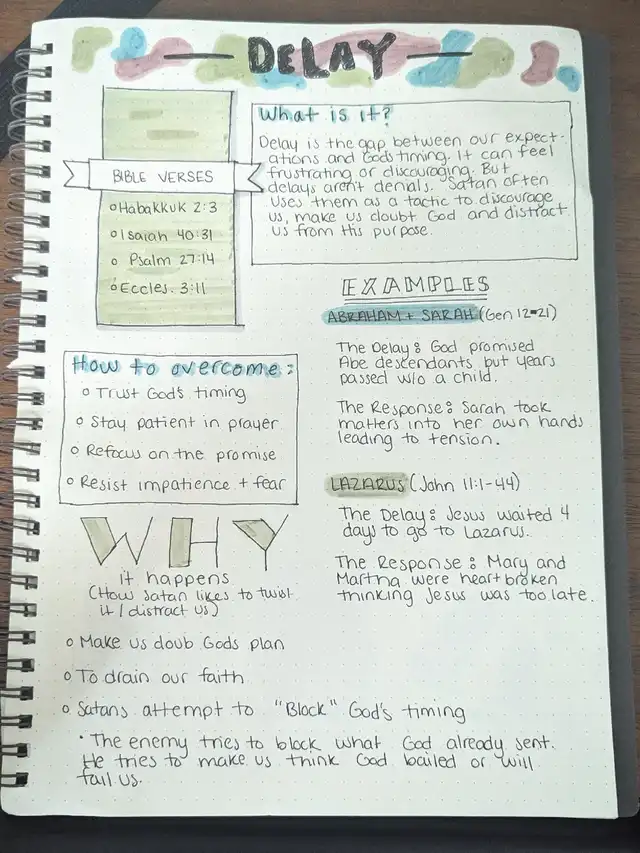 DELAY
What is it?
Delay is the gap between our expect-
ations and Gods timing. It can feel
frustrating or discouraging. But
delays aren't denials. Satan often
uses them as a tactic to discourage
us, make us doubt God and distract
us from His purpose.
BIBLE VERSES
Habakkuk 2:3
Isaiah 40:31
Psalm 27:14
Eccles. 3:11
EXAMPLES
ABRAHAM + SARAH (Gen 12-21)
The Delay: God promised
Abe descendants but years
passed w/o a child.
The Response: Sarah took
matters into her own hands
leading to tension.
LAZARUS (John 11:1-44)
The Delay: Jesus waited 4
days to go to Lazarus.
The Response: Mary and
Martha were heart broken
thinking Jesus was too late.
How to overcome:
Trust God's timing
Stay patient in prayer
Refocus on the promise
Resist impatience + fear
WHY
it happens
(How Satan likes to twist
it / distract us)
Make us doub Gods plan
To drain our faith
Satans attempt to "Block" God's timing
The enemy tries to block what God already sent.
He tries to make us think God bailed or will
fail us.